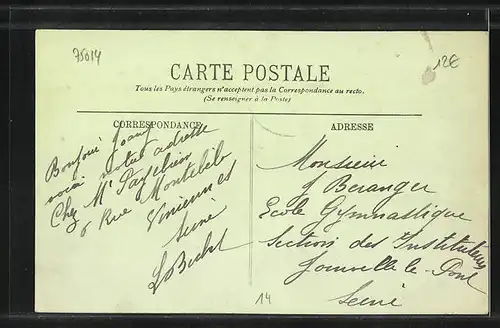 75014
12€
CARTE POSTALE
Tous les Pays étrangers n'acceptent pas la Correspondance au recto.
(Se renseigner à la Poste)
CORRESPONDANCE
Bonjour
voici notre adresse
Chez Mr
6 Rue Montebello
Vincennes
Seine
ADRESSE
Monsieur
J Beranger
Ecole Gymnastique
Section des Instituteurs
Joinville-le-Pont
Seine
14